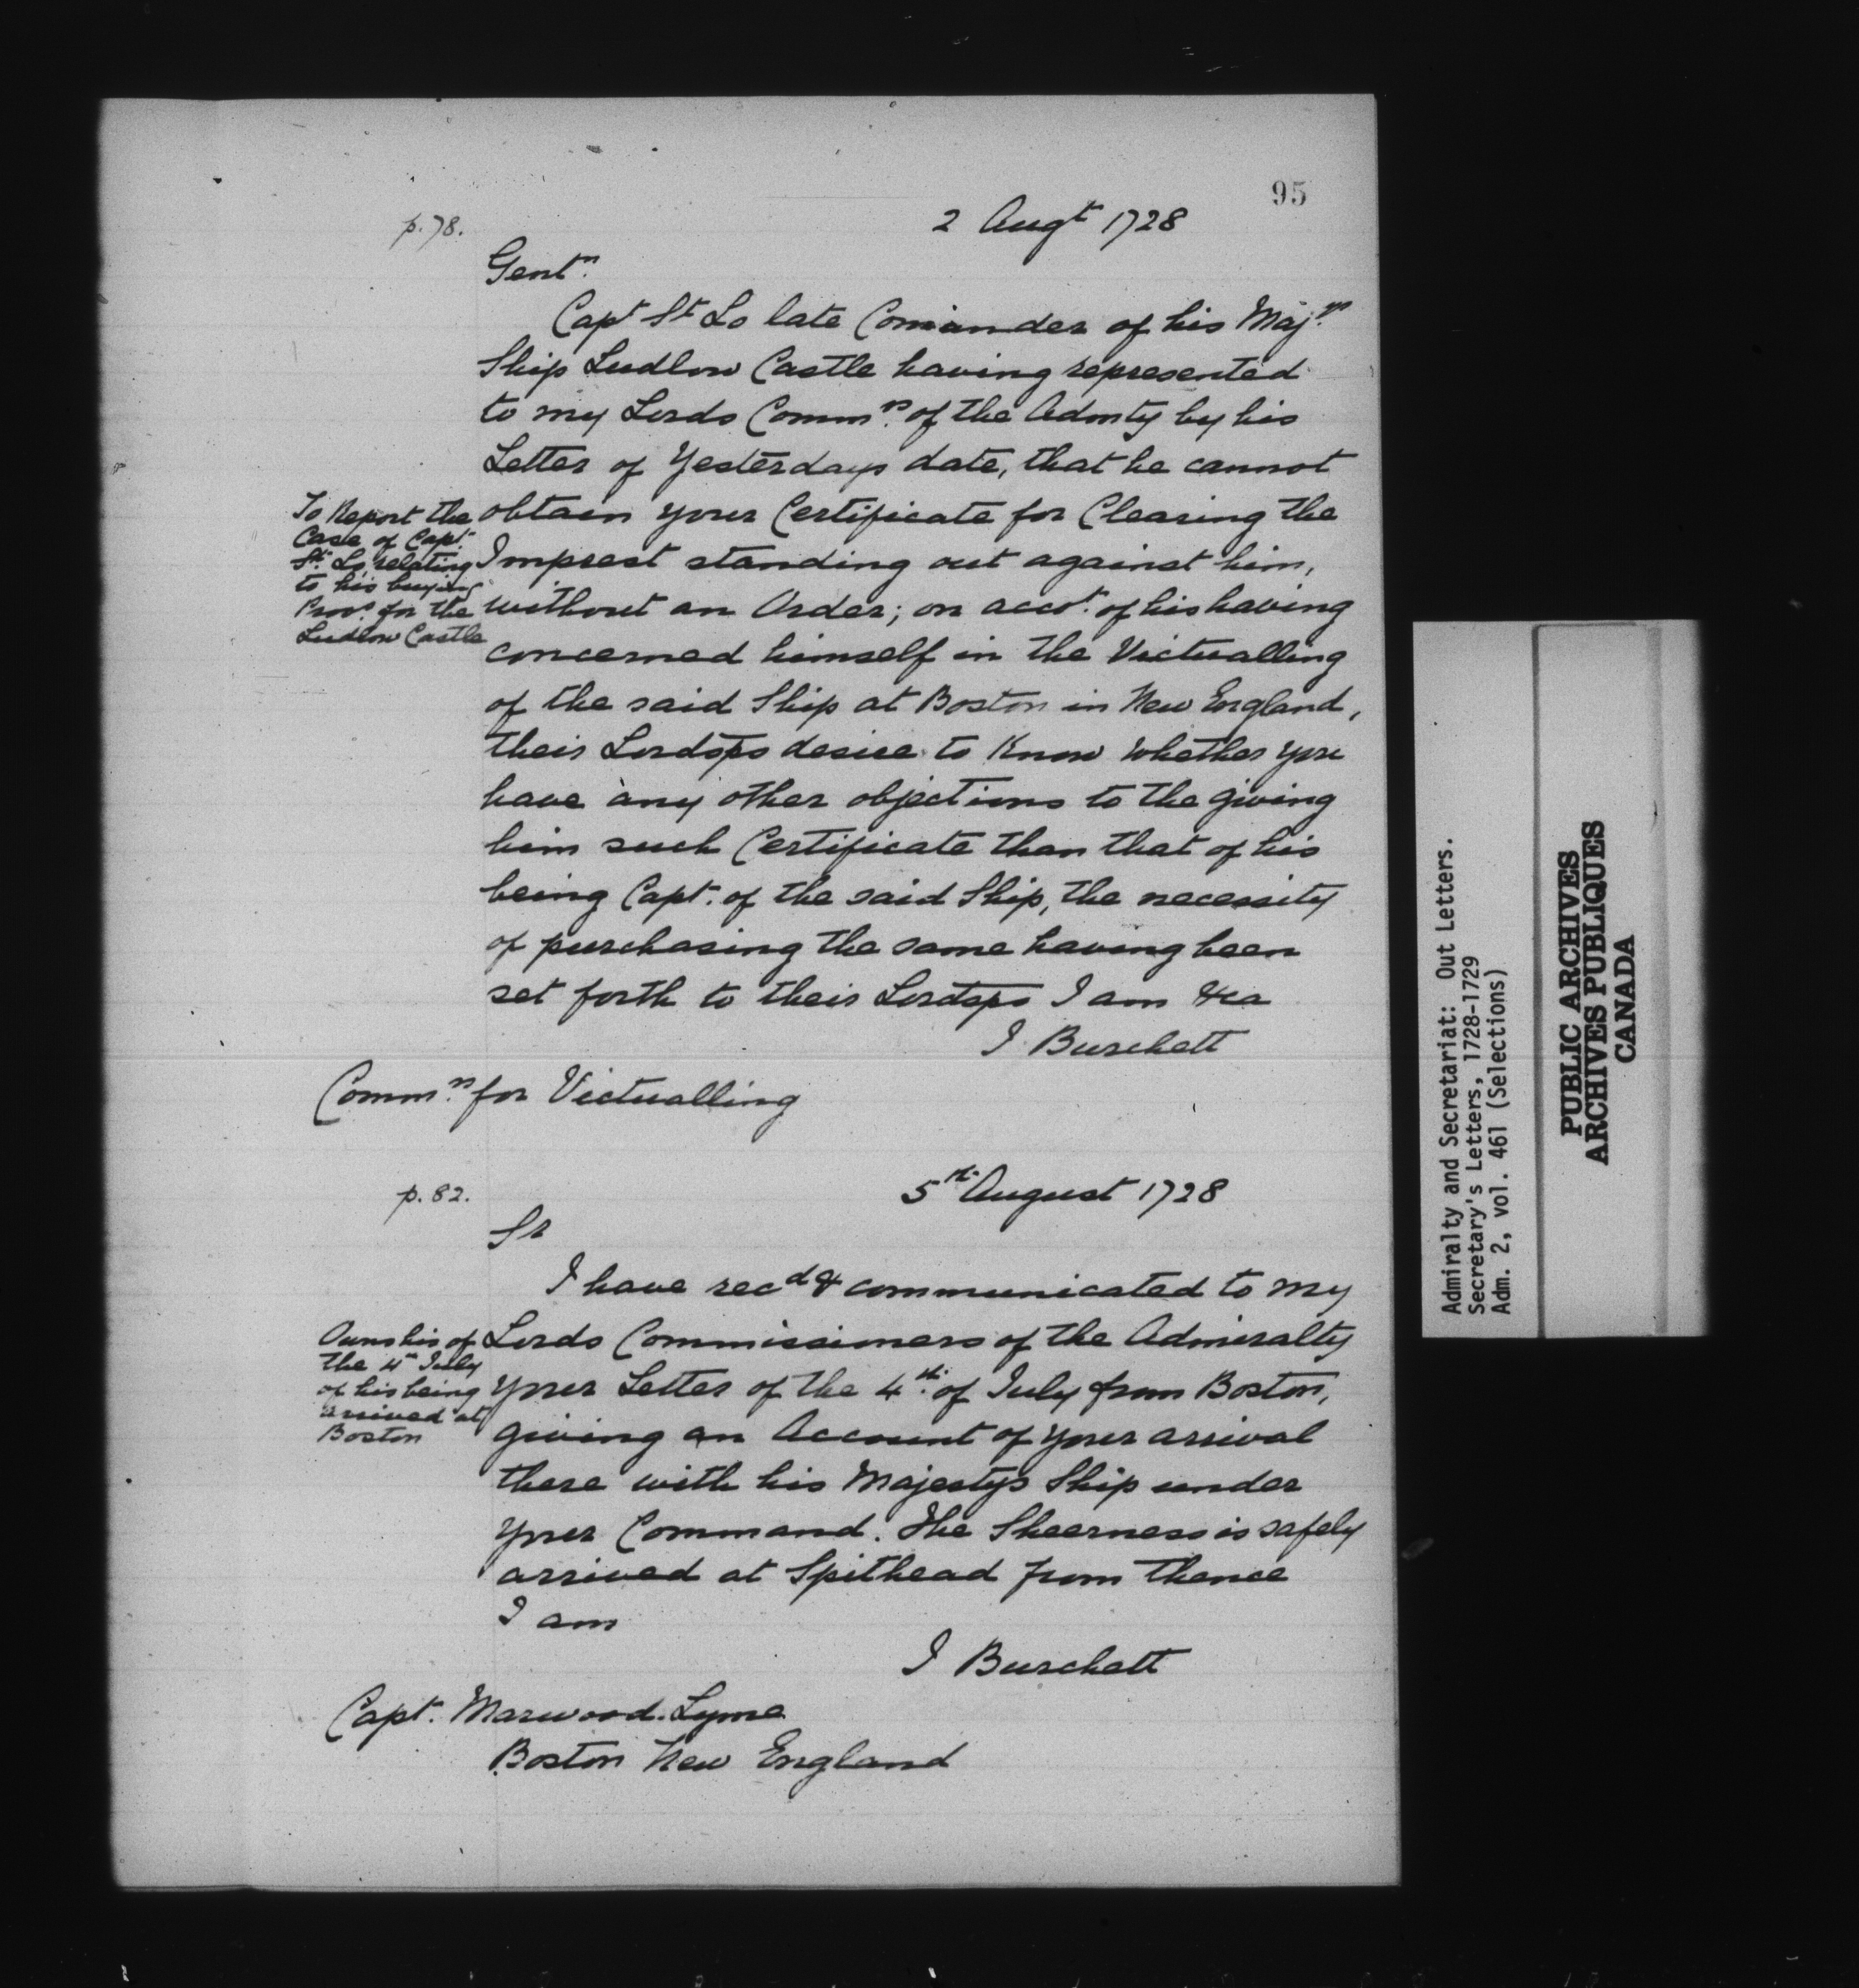 95
p. 78.
2 Augt 1728
Gentn.
Capt St Lo late Comander of his Majts.
Ship Ludlow Castle having represented
to my Lords Commrs. of the Admty by his
Letter of Yesterdays date, that he cannot
obtain your Certificate for Clearing the
Imprest standing out against him,
without an Order; on accot. of his having
concerned himself in the Victualling
of the said Ship at Boston in New England,
their Lordsps desire to Know whether you
have any other objections to the giving
him such Certificate than that of his
being Capt. of the said Ship, the necessity
of purchasing the same having been
set forth to their Lordsps I am &ca
J Burchett
To Report the
Case of Capt.
St. Lo, relating
to his buying
Provs. for the
Ludlow Castle
Commrs. for Victualling
p. 82.
5th. August 1728
Sr
I have recd & communicated to my
Lords Commissioners of the Admiralty
your Letter of the 4th. of July from Boston,
giving an Account of your arrival
there with his Majestys Ship under
your Command. The Sheerness is safely
arrived at Spithead from thence
I am
J Burchett
Owns his of
the 4th July
of his being
arrived at
Boston
Capt. Marwood. Lyme
Boston New England
Admiralty and Secretariat: Out Letters.
Secretary's Letters, 1728-1729
Adm. 2, vol. 461 (Selections)
PUBLIC ARCHIVES
ARCHIVES PUBLIQUES
CANADA